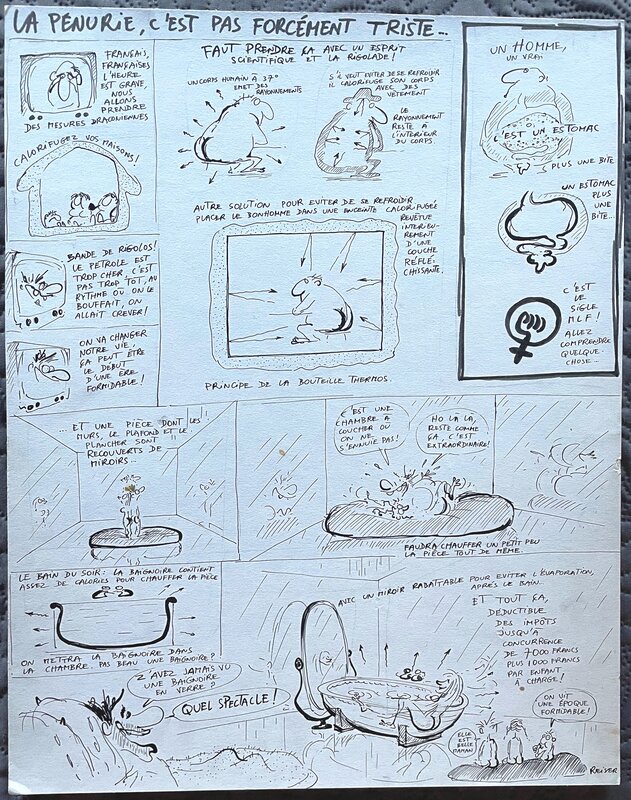 LA PENURIE, C'EST PAS FORCÉMENT TRISTE...
FRANÇAIS,
FRANÇAISES
L'HEURE
EST GRAVE,
NOUS
ALLONS
PRENDRE
DES MESURES DRACONIENNES
CALORIFUGEZ VOS MAISONS!
BANDE DE RIGOLOS!
LE PETROLE EST
TROP CHER, C'EST
PAS TROP TÔT, AU
RYTHME OÙ ON LE
BOUFFAIT, ON
ALLAIT CREVER!
ON VA CHANGER
NOTRE VIE,
ÇA PEUT ÊTRE
LE DÉBUT
D'UNE ÈRE
FORMIDABLE!
FAUT PRENDRE ÇA AVEC UN ESPRIT
SCIENTIFIQUE ET LA RIGOLADE!
UN CORPS HUMAIN À 37°
EMET DES
RAYONNEMENTS
S'IL VEUT EVITER DE SE REFROIDIR
IL CALORIFUGE SON CORPS
AVEC DES
VÊTEMENT
LE
RAYONNEMENT
RESTE À
L'INTÉRIEUR
DU CORPS
AUTRE SOLUTION POUR EVITER DE SE REFROIDIR
PLACER LE BONHOMME DANS UNE ENCEINTE CALORIFUGÉE
REVÊTUE
INTERIEU-
REMENT
D'UNE
COUCHE
RÉFLÉ-
CHISSANTE.
PRINCIPE DE LA BOUTEILLE THERMOS.
UN HOMME,
UN VRAI
C'EST UN ESTOMAC
PLUS UNE BITE
UN ESTOMAC
PLUS
UNE
BITE...
C'EST
LE
SIGLE
MLF!
ALLEZ
COMPRENDRE
QUELQUE-
CHOSE...
... ET UNE PIÈCE DONT LES
MURS, LE PLAFOND ET LE
PLANCHER SONT
RECOUVERTS DE
MIROIRS...
C'EST UNE
CHAMBRE À
COUCHER OÙ
ON NE
S'ENNUIE PAS!
HO LA LA,
RESTE COMME
ÇA, C'EST
EXTRAORDINAIRE!
FAUDRA CHAUFFER UN PETIT PEU
LA PIÈCE TOUT DE MÊME.
LE BAIN DU SOIR: LA BAIGNOIRE CONTIENT
ASSEZ DE CALORIES POUR CHAUFFER LA PIÈCE
ON METTRA LA BAIGNOIRE DANS
LA CHAMBRE. PAS BEAU UNE BAIGNOIRE?
Z'AVEZ JAMAIS VU
UNE BAIGNOIRE
EN VERRE?
QUEL SPECTACLE!
AVEC UN MIROIR RABATTABLE POUR EVITER L'ÉVAPORATION,
APRÈS LE BAIN.
ET TOUT ÇA,
DÉDUCTIBLE
DES IMPÔTS
JUSQU'À
CONCURRENCE
DE 7000 FRANCS
PLUS 1000 FRANCS
PAR ENFANT
À CHARGE!
ELLE
EST
BELLE
MAMAN
ON VIT
UNE ÉPOQUE
FORMIDABLE!
REISER